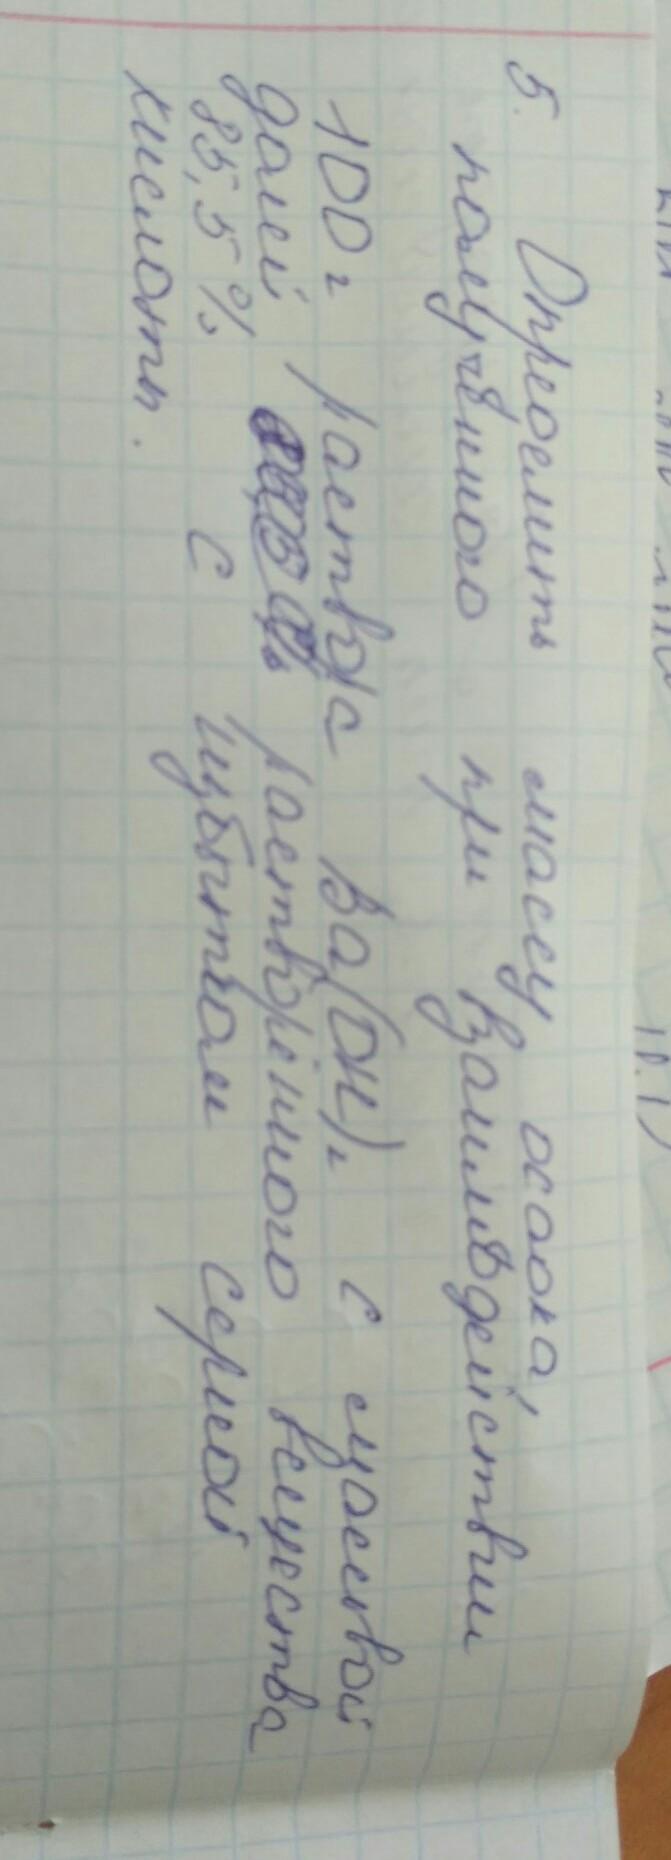 5. Определить массу осадка,
полученного при взаимодействии
100 г раствора Ba(OH)₂ с массовой
долей растворённого вещества
85,5% с избытком серной
кислоты.